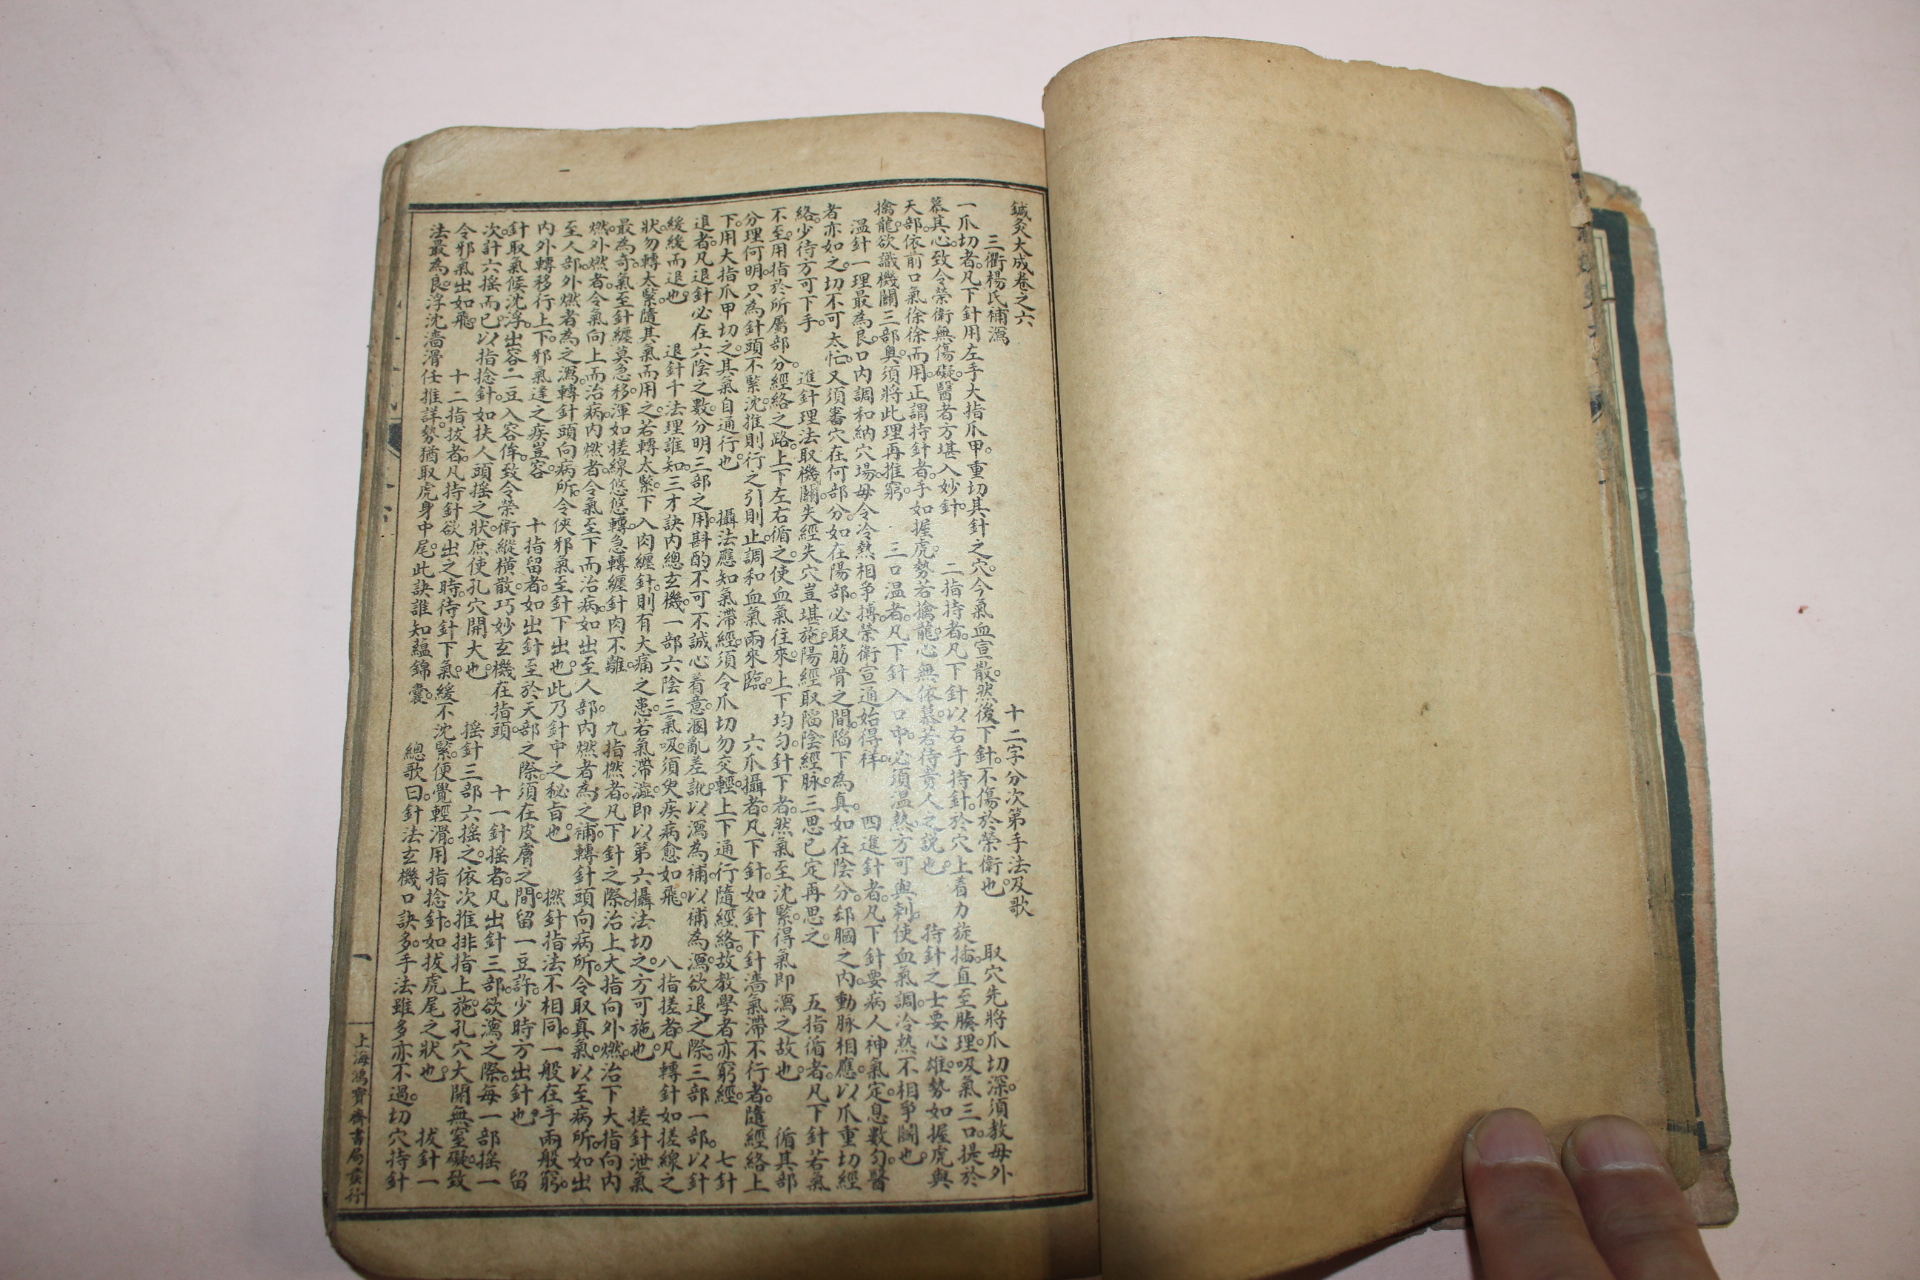 鍼灸大成卷之六
三衢楊氏補瀉　十二字分次第手法及歌
一爪切者。凡下針用左手大指爪甲。重切其針之穴。令氣血宣散。然後下針。不傷於榮衛也。　取穴先將爪切深。須教毋外
慕其心。致令榮衛無傷礙。醫者方堪入妙針。　二指持者。凡下針以右手持針。於穴上着力旋插。直至腠理。吸氣三口。提於
天部。依前口氣徐徐而用。正謂持針者。手如握虎。勢若擒龍。心無依慕。若待貴人之說也。　持針之士要心雄。勢如握虎與
擒龍。欲識機關三部奧。須將此理再推窮。　三口温者。凡下針入口中。必須温熱。方可與刺。使血氣調。冷熱不相爭鬭也。
温針一理最為良。口內調和納穴場。毋令冷熱相爭搏。榮衛宣通始得祥。　四進針者。凡下針要病人神氣定。息數勻。醫
者亦如之。切不可太忙。又須審穴在何部分。如在陽部。必取筋骨之間陷下為真。如在陰分。郄膕之內。動脉相應。以爪重切經
絡。少待方可下手。　進針理法取機關。失經失穴豈堪施。陽經取陷陰經脉。三思已定再思之。　五指循者。凡下針若氣
不至。用指於所屬部分。經絡之路。上下左右循之。使血氣往來。上下均勻。針下者。然氣至沈緊。得氣即瀉之故也。　循其部
分理何明。只為針頭不緊沈。推則行之引則止。調和血氣兩來臨。　六爪攝者。凡下針。如針下針濇氣滯不行者。隨經絡上
下。用大指爪甲切之。其氣自通行也。　攝法應知氣滯經。須令爪切勿交輕。上下通行隨經絡。故教學者亦窮經。　七針
退者。凡退針必在六陰之數。分明三部之用。斟酌不可不誠心着意。溷亂差訛。以瀉為補。以補為瀉。欲退之際。三部一部。以針
緩緩而退也。　退針千法理誰知。三才訣內總玄機。一部六陰三氣吸。須臾疾病愈如飛。　八指搓者。凡轉針如搓線之
狀。勿轉太緊。隨其氣而用之。若轉太緊。下入肉纏針。則有大痛之患。若氣滯澁。即以第六攝法切之。方可施也。　搓針泄氣
最為奇。氣至針纏莫急移。渾如搓線悠悠轉。急轉纏針肉不離　九指撚者。凡下針之際。治上大指向外燃。治下大指向內
燃。外燃者。令氣向上而治病。內燃者。令氣至下而治病。如出至人部。內燃者為之補。轉針頭向病所。令取真氣以至病所。如出
至人部。外燃者為之瀉。轉針頭向病所。令俠邪氣至針下出也。此乃針中之秘旨也。　撚針指法不相同。一般在手兩般窮。
內外轉移行上下。邪氣逢之疾豈容。　十指留者。如出針至於天部之際。須在皮膚之間留一豆許。少時方出針也。　留
針取氣候沈浮。出容一豆入容侔。致令榮衛縱橫散。巧妙玄機在指頭。　十一針搖者。凡出針三部。欲瀉之際。每一部搖一
次。計六搖而已。以指捻針。如扶人頭搖之狀。庶使孔穴開大也。　搖針三部六搖之。依次推排指上施。孔穴大開無窒礙。致
令邪氣出如飛　十二指拔者。凡持針欲出之時。待針下氣緩不沈緊。便覺輕滑。用指捻針。如拔虎尾之狀也。　拔針一
法最為良。浮沈濇滑任推詳。勢猶取虎身中尾。此訣誰知蘊錦囊。　總歌曰。針法玄機口訣多。手法雖多亦不過。切穴持針
一
上海鴻寶齋書局發行